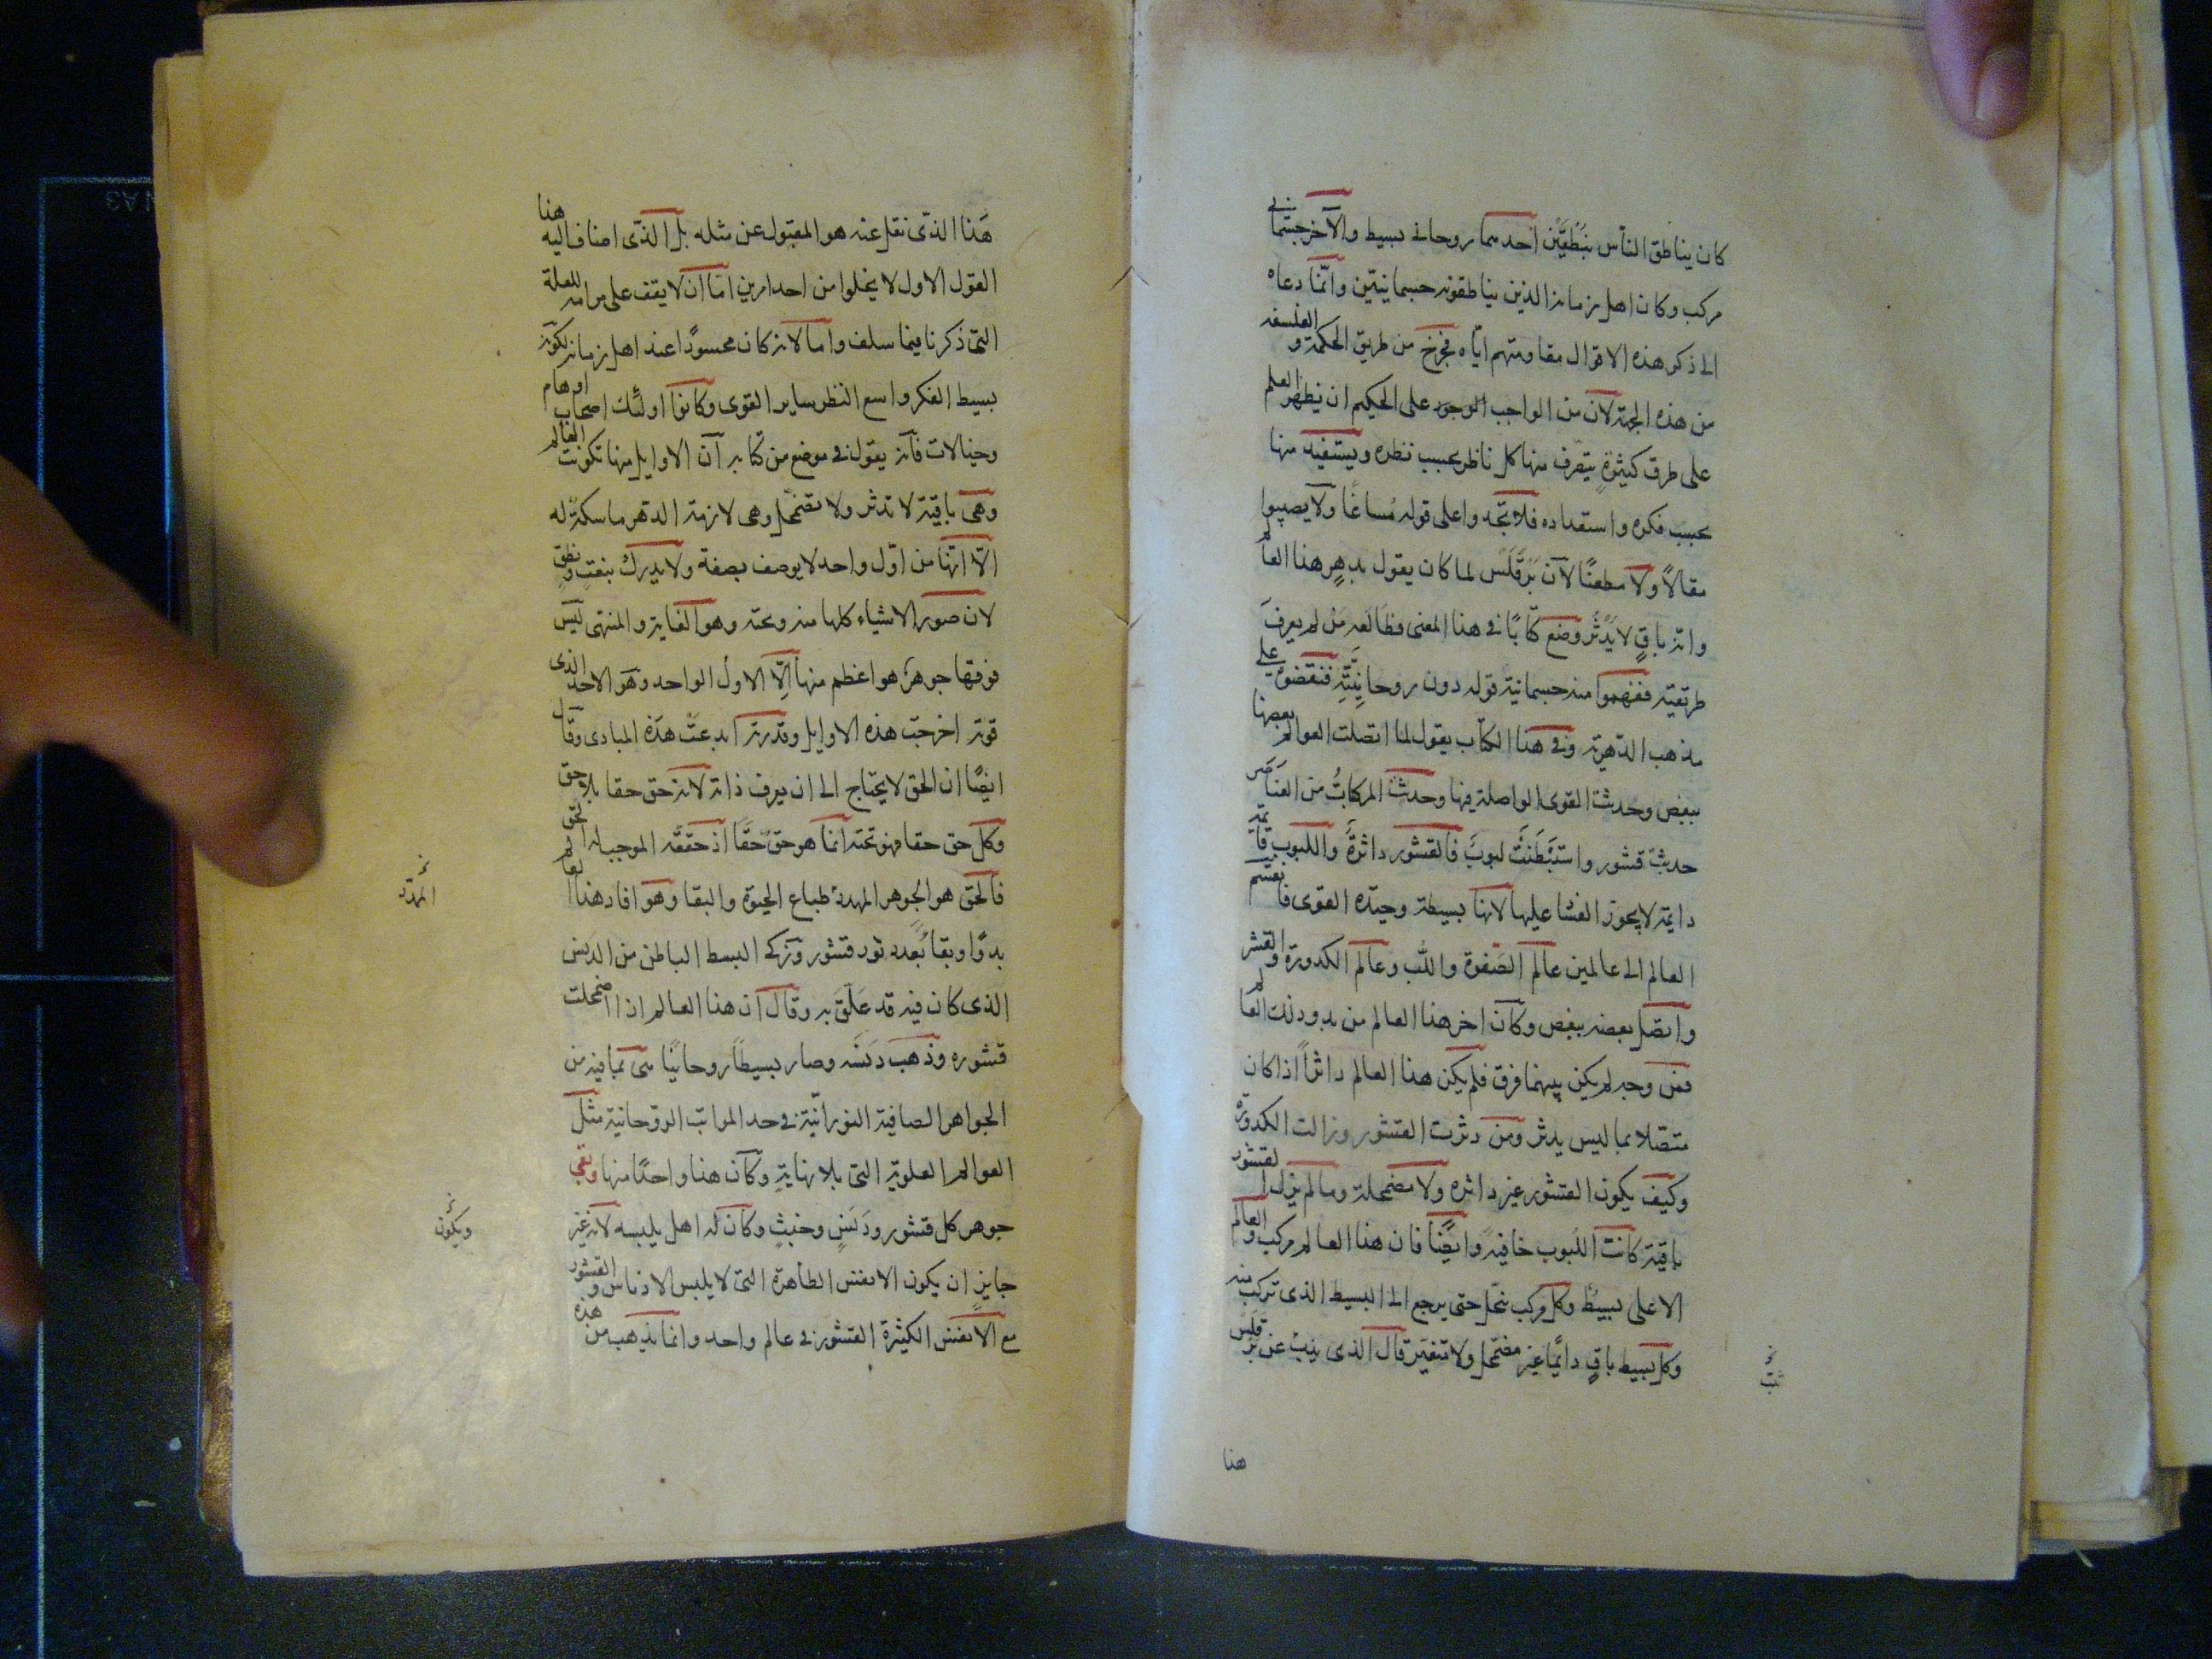 كان يناطق الناس بنُطقَين احدهما روحانى بسيط والآخر جسمانى
مركب وكان اهل زمانه الذين يناطقونه جسمانيتين وانّما دعاه
الى ذكر هذه الاقوال مقاومتهم ايّاه فخرج من طريق الحكمة والفلسفه
من هذه الجهة لان من الواجب الوجود على الحكيم ان يظهر العلم
على طرق كثيرةٍ يتصرف منها كل ناظر بحسب نظره ويستفيد منها
بحسب فكره واستعداده فلا تجد واعلى قوله مُساغًا ولا يصيبوا
مقالاً ولا مطعنًا لآن بَرقَلَس لما كان يقول بدهر هذا العالم
وانّه باقٍ لا يَدثُر وضع كتابًا فى هذا المعنى فطالعه مَن لم يعرف
طريقته ففهموا منه جسمانية قوله دون روحانيّته فنقضوه على
مذهب الدّهريّة وفى هذا الكتاب يقول لما اتصلت العوالم بعضها
ببعض وحدثت القوى الواصلة فيها وحدثت المركباتُ من العناصر
حدثت قشور واستَبطَنَت لبوبَ فالقشور داثرة واللبوب قائمة
دايمة لا يجوز الفسا عليها لانها بسيطة وحيده القوى فانقسم
العالم الى عالمين عالم الصّفوة واللّب وعالم الكدورة والقشر
واتصل بعضه ببعض وكان اخر هذا العالم من بدو ذلك العالم
فمن وجه لم يكن بينهما فرق فلم يكن هذا العالم داثراً اذا كان
متصّلا بما ليس يدثر ومن دثرت القشور وزالت الكدورة
وكيف يكون القشور غير داثره ولا مضمحلة وما لم يزل القشور
باقية كانت اللبوب خافيةً وايضًا فان هذا العالم مركب والعالم
الاعلى بسيط وكل مركب ينحل حتى يرجع الى البسيط الذى تركب منه
وكل بسيط باقٍ دائمًا غير مضمحل ولا متغير قال الذى يذب عن برقلس
نخ
هذا
هَذا الذى نقل عنه هو المقبول عن مثله بل الذى اضاف اليه هذا
القول الاول لا يخلوا من احد امرين امّا ان لا يقف على مرامه للعلة
التى ذكرنا فيما سلف واما لانه كان محسودًا عند اهل زمانه لكونه
بسيط الفكر واسع النظر ساير القوى وكانوا اولئك اصحاب اوهام
وخيالات فانه يقول فى موضع من كتابه ان الاوايل منها تكونت العالم
وهى باقية لا تدثر ولا تضمحل وهى لازمة الدهر ماسكة له
الّا انّها من اوّل واحد لا يوصف بصفة ولا يدرك بنعتٍ ونطق
لان صور الاشياء كلها منه وتحته وهو الغاية والمنتهى ليس
فوقها جوهر هو اعظم منها الّا الاول الواحد وهو الاحد الذى
قوّته اخرجت هذه الاوايل وقدرته ابدعت هذه المبادى وقال
ايضًا ان الحق لا يحتاج الى ان يعرف ذاته لانه حق حقا بلا حق
وكل حق حقا فهو تحته انما هو حق حقًّا اذ حققّه الموجب له الحق
فالحق هو الجوهر المهد طباع الحيوة والبقا وهو افاد هذا العالم
بدوًا وبقا بَعد دثور قشوره وزكى البسط الباطن من الدنس
الذى كان فيه قد عَلَق به وقال ان هذا العالم اذا اضمحلت
قشوره وذهب دنسَه وصار بسيطًا روحانيًا بقى بما فيه من
الجواهر الصافية النورانيّة فى حد المراتب الروحانية مثل
العوالم العلوية التى بلا نهايةٍ وكان هذا واحدًا منها وبقى
جوهر كل قشور ودَنَسٍ وخبثٍ وكان له اهل يلبسه لانه غير
جايزٍ ان يكون الانفس الطاهرة التى لا يلبس الادناس والقشور
مع الانفس الكثيرة القشور فى عالم واحد وانما يذهب من هذه
نخ
الممد
نخ
ويكون